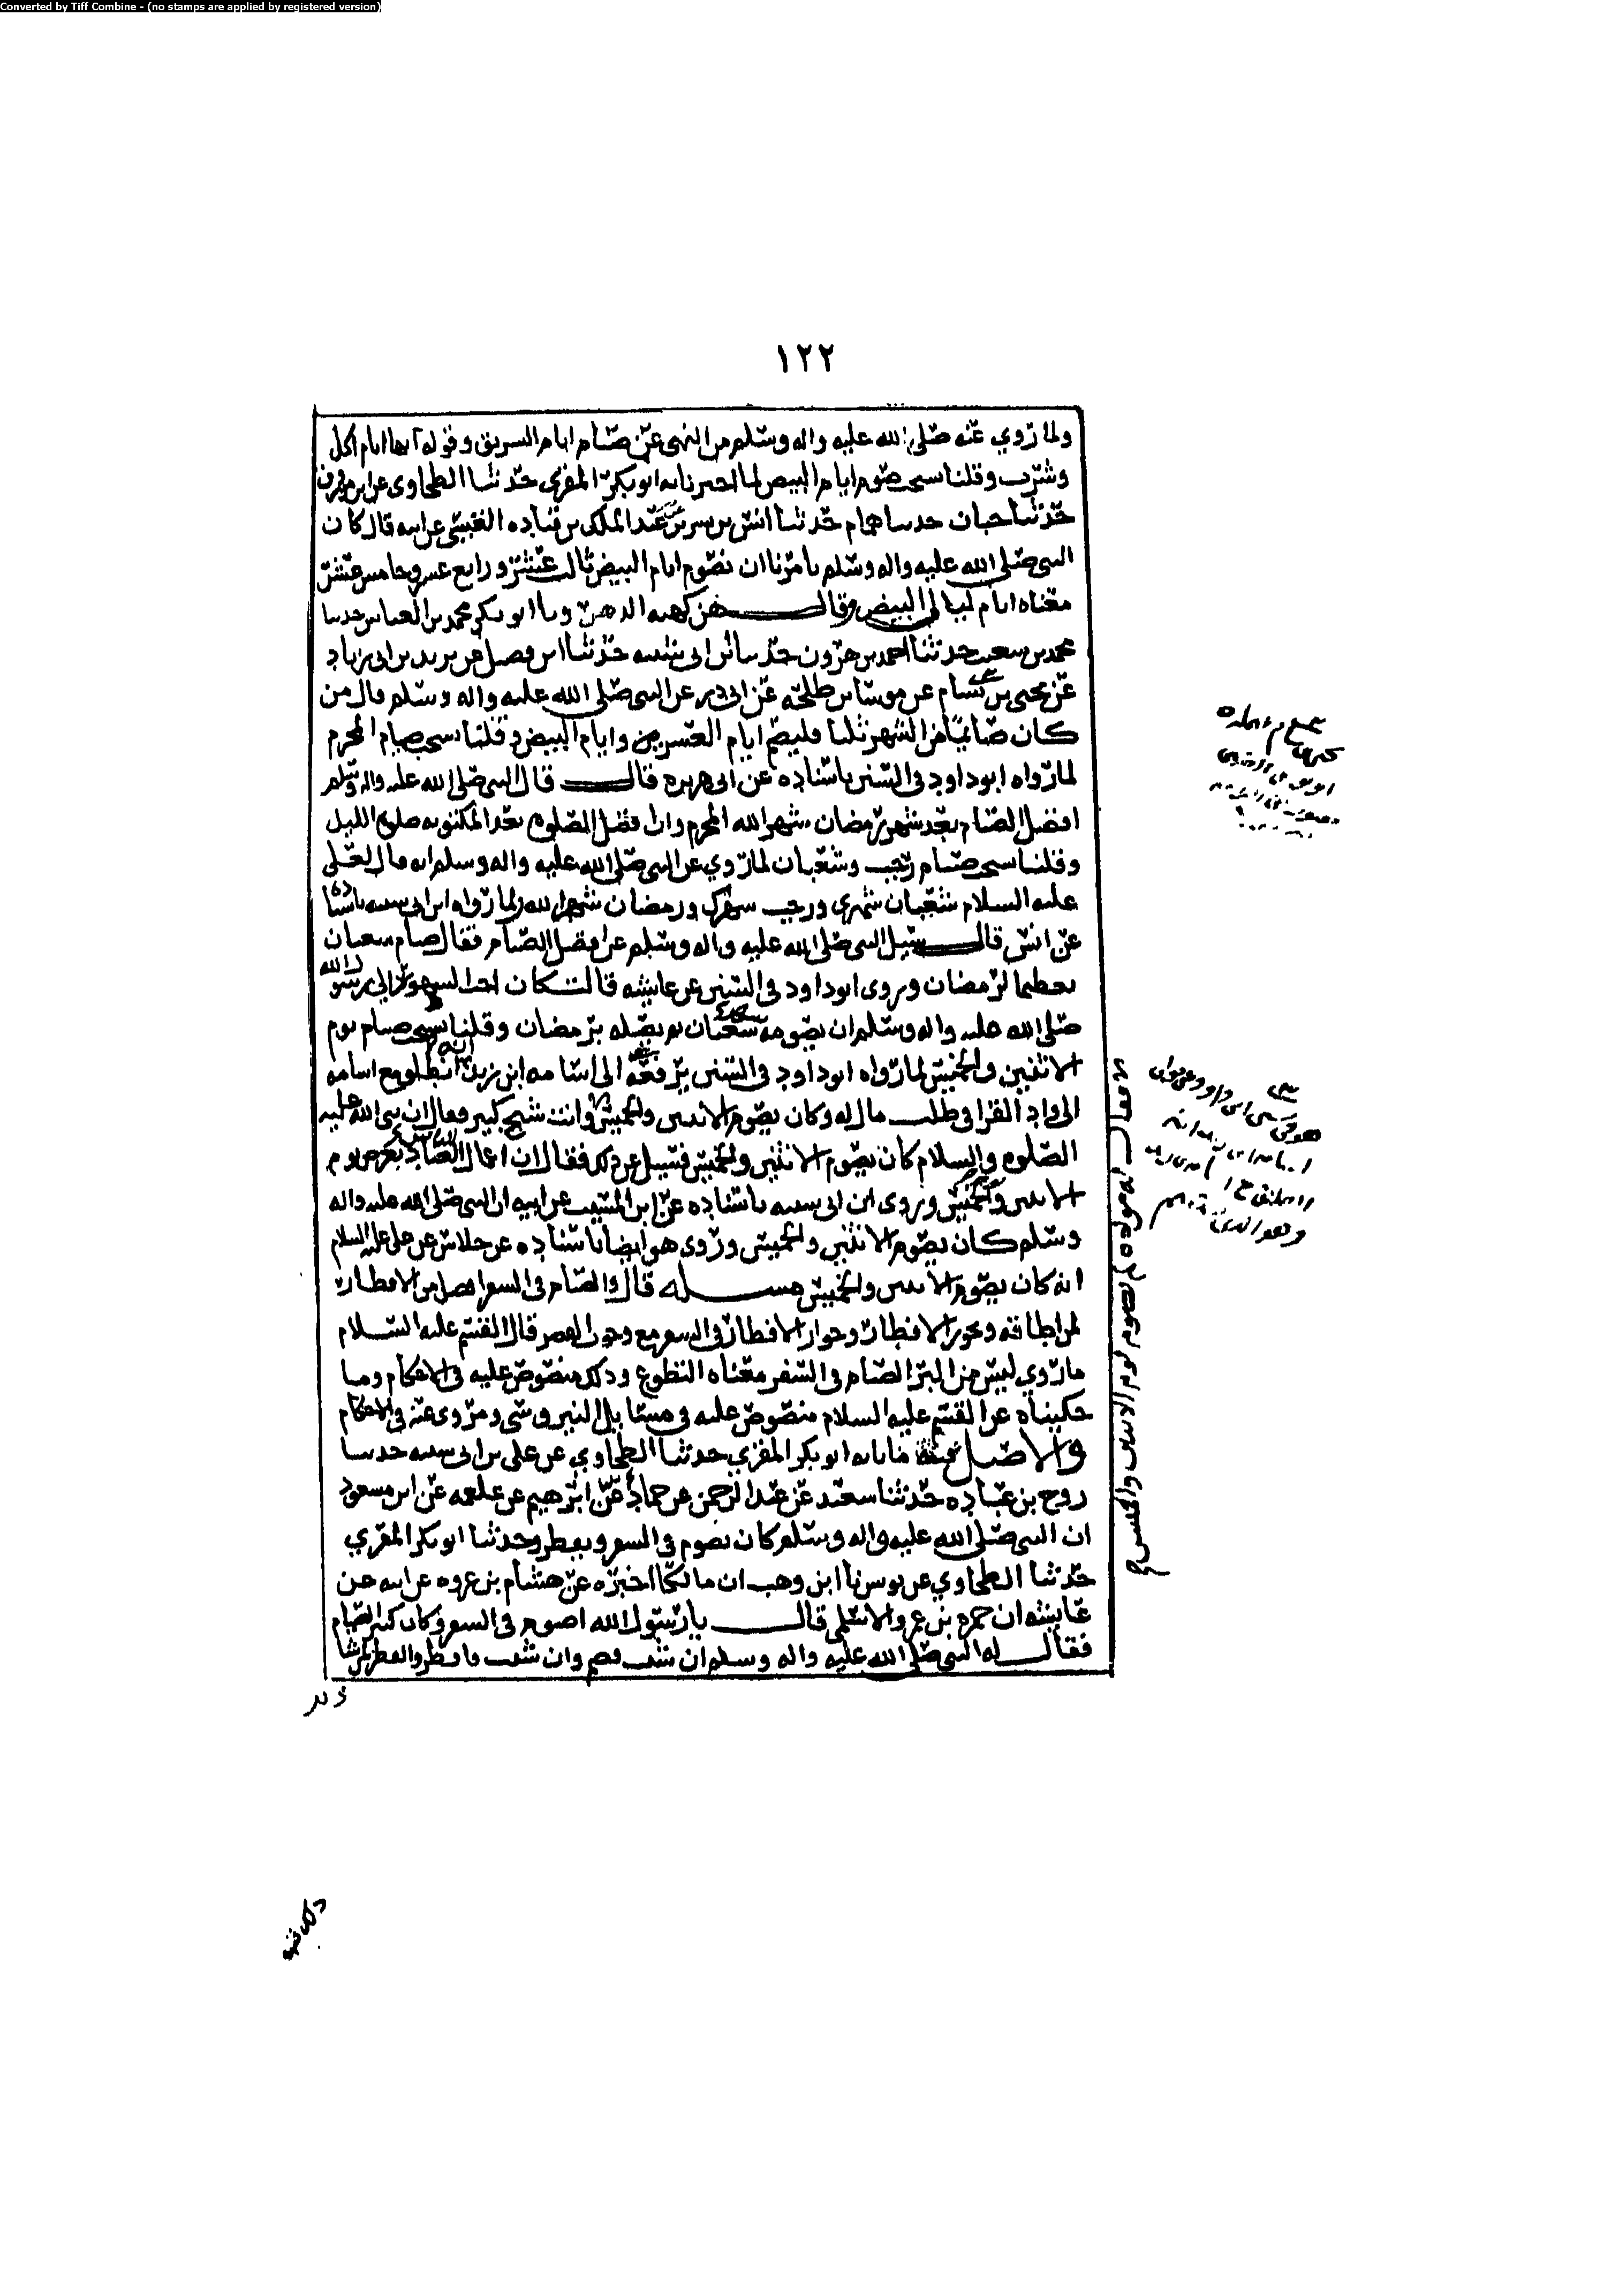 Converted by Tiff Combine - (no stamps are applied by registered version)
١٢٢
ولما روي عنه صلى الله عليه واله وسلم من النهي عن صيام ايام التشريق وقوله انها ايام اكل
وشرب وقلنا يستحب صوم ايام البيض لما اخبرنا به ابو بكر المقري حدثنا الطحاوي عن ابن مرزوق
حدثنا حبان حدثنا همام حدثنا انس بن سيرين عن عبد الملك بن قتاده القيسي عن ابيه قال كان
النبي صلى الله عليه واله وسلم يامرنا ان نصوم ايام البيض ثالث عشر ورابع عشر وخامس عشر
معناه ايام ليالي البيض وقال هن كهيه الدهر ونا ابو بكر محمد بن العباس حدثنا
محمد بن سعيد حدثنا احمد بن هرون حدثنا ابن ابي شيبه حدثنا ابن فضيل عن يزيد بن ابي زياد
عن يحيى بن بسام عن موسى بن طلحه عن ابي ذر عن النبي صلى الله عليه واله وسلم قال من
كان صائما من الشهر ثلثا فليصم ايام العشر وايام البيض وقلنا يستحب صيام المحرم
لما رواه ابو داود في السنن باسناده عن ابي هريره قال قال النبي صلى الله عليه واله وسلم
افضل الصيام بعد شهر رمضان شهر الله المحرم وان افضل الصلوه بعد المكتوبه صلوه الليل
وقلنا يستحب صيام رجب وشعبان لما روي عن النبي صلى الله عليه واله وسلم انه قال لعلي
عليه السلام شعبان شهري ورجب شهرك ورمضان شهر الله ولما رواه ابن ابي شيبه باسناده
عن انس قال سيل النبي صلى الله عليه واله وسلم عن افضل الصيام فقال صيام شعبان
تعظيما لرمضان وروى ابو داود في السنن عن عايشه قالت كان احب الشهور الى رسول الله
صلى الله عليه واله وسلم ان يصومه شعبان ثم يصله برمضان وقلنا يستحب صيام يوم
الاثنين والخميس لما رواه ابو داود في السنن يرفعه الى اسامه ابن زيد انه انطلق مع اسامه
الى واد القرا في طلب مال له وكان يصوم الاثنين والخميس وانت شيخ كبير فقال ان نبي الله عليه
الصلوه والسلام كان يصوم الاثنين والخميس فسيل عن ذلك فقال ان اعمال العباد تعرض يوم
الاثنين والخميس وروى ابن ابي شيبه باسناده عن ابن المسيب عن ابيه ان النبي صلى الله عليه واله
وسلم كان يصوم الاثنين والخميس وروى هو ايضا باسناده عن خلاس عن علي عليه السلام
انه كان يصوم الاثنين والخميس مسله قال والصيام في السفر افضل من الافطار
لمن اطاقه ويجوز الافطار وجواز الافطار في السفر مع وجوب القصر قال القسم عليه السلام
ما روي ليس من البر الصيام في السفر معناه التطوع وذلك منصوص عليه في الاحكام وما
حكيناه عن القسم عليه السلام منصوص عليه في مسايل النيروسي ومروي عنه في الاحكام
والاصل فيه ما نابه ابو بكر المقري حدثنا الطحاوي عن علي بن ابي شيبه حدثنا
روح بن عباده حدثنا سعيد عن عبد الرحمن عن حماد عن ابرهيم عن علقمه عن ابن مسعود
ان النبي صلى الله عليه واله وسلم كان يصوم في السفر ويفطر وحدثنا ابو بكر المقري
حدثنا الطحاوي عن يونس نا ابن وهب ان مالكا اخبره عن هشام بن عروه عن ابيه عن
عايشه ان حمزه بن عمرو الاسلمي قال يا رسول الله اصوم في السفر وكان كثير الصيام
فقال له النبي صلى الله عليه واله وسلم ان شيت فصم وان شيت فافطر
فقال له مولاه لم تصوم يوم الاثنين والخميس